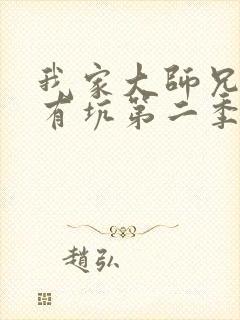 我家大師兄
有坑第二季
趙弘